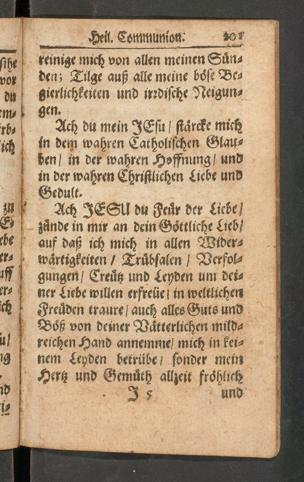 Heil. Communion. 201
reinige mich von allen meinen Sün-
den; Tilge auß alle meine böse Be-
gierlichkeiten und irrdische Neigun-
gen.
Ach du mein JEsu / stärcke mich
in dem wahren Catholischen Glau-
ben / in der wahren Hoffnung / und
in der wahren Christlichen Liebe und
Gedult.
Ach JESU du Feür der Liebe /
zünde in mir an dein Göttliche Lieb /
auf daß ich mich in allen Wider-
wärtigkeiten / Trübsalen / Verfol-
gungen / Creütz und Leyden um dei-
ner Liebe willen erfreüe / in weltlichen
Freüden traure / auch alles Guts und
Böß von deiner Vätterlichen mild-
reichen Hand annemme / mich in kei-
nem Leyden betrübe / sonder mein
Hertz und Gemüth allzeit fröhlich
J 5 und